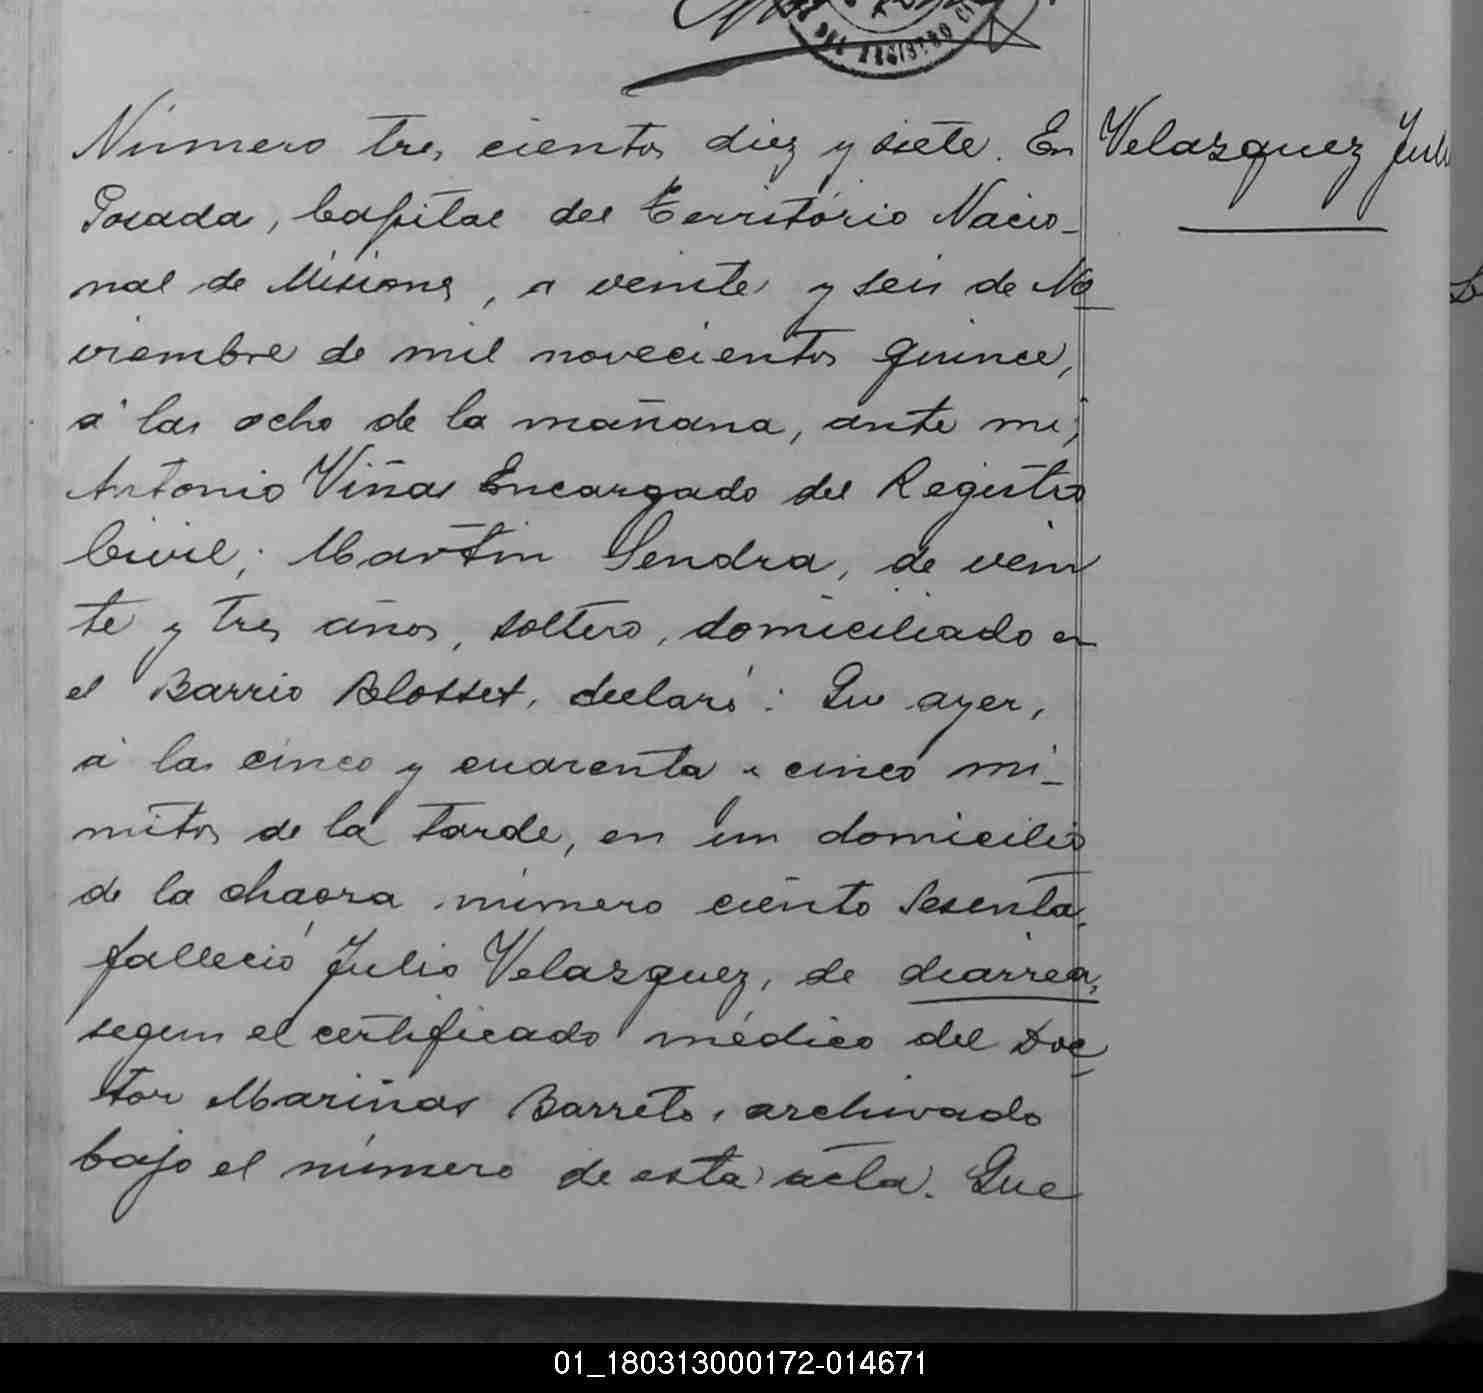 DEL REGISTRO CI
Número tres cientos diez y siete. En
Velazquez Juli
Posadas, Capital del Território Nacio-
nal de Misiones, a veinte y seis de No
viembre de mil novecientos quince,
á las ocho de la mañana, ante mi,
Antonio Viñas Encargado del Registro
Civil; Martin Sendra, de vein
te y tres años, soltero, domiciliado en
el Barrio Blosset, declaró: Que ayer,
á las cinco y cuarenta y cinco mi-
nutos de la tarde, en un domicilio
de la chacra número ciento sesenta,
falleció Julio Velazquez, de diarrea,
segun el certificado médico del Doc
tor Mariñas Barreto, archivado
bajo el número de esta acta. Que
01_180313000172-014671